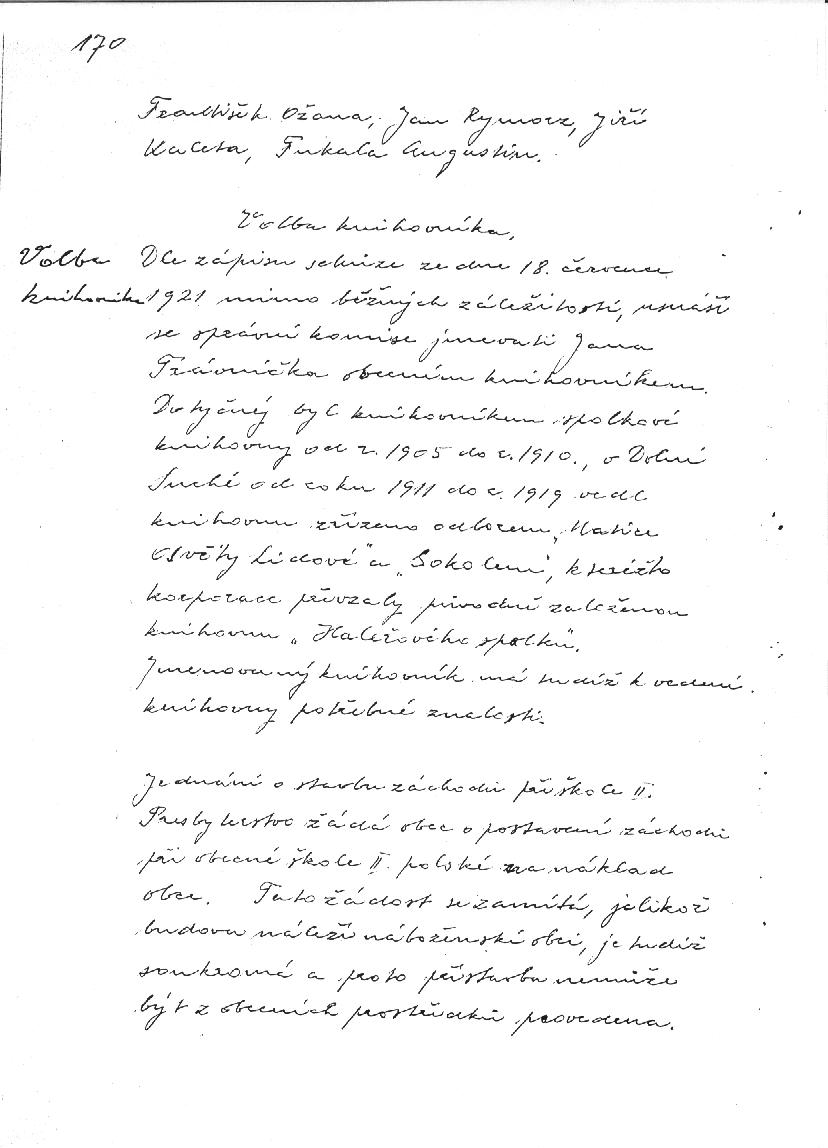 170
František Ožana, Jan Rymorz, Jiří
Kaleta, Fukala Augustin.
Volba knihovníka.
Volba
knihovníka
Dle zápisu schůze ze dne 18. července
1921 mimo běžných záležitostí, usnáší
se správní komise jmenovati Jana
Trávníčka obecním knihovníkem.
Dotyčný byl knihovníkem spolkové
knihovny od r. 1905 do r. 1910., v Dolní
Suché od roku 1911 do r. 1919 vedl
knihovnu zřízenou odborem „Matice
Osvěty Lidové" a „Sokolem", kteréžto
korporace převzaly původně založenou
knihovnu „Haléřového spolku".
Jmenovaný knihovník má tudíž k vedení
knihovny potřebné znalosti.
Jednání o stavbu záchodů při škole II.
Presbyterstvo žádá obec o postavení záchodů
při obecné škole II. polské na náklad
obce. Tato žádost se zamítá, jelikož
budova náleží náboženské obci, je tudíž
soukromá a proto přístavba nemůže
být z obecních prostředků provedena.